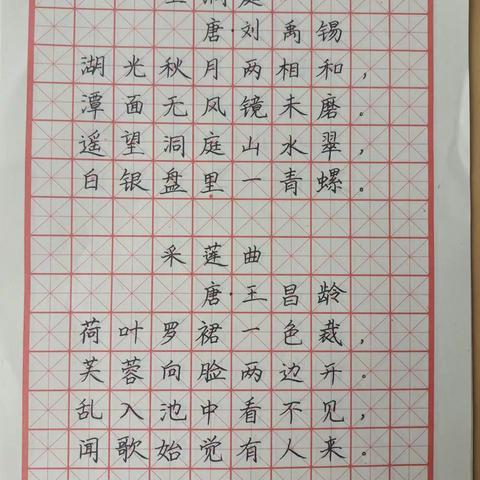 唐·刘禹锡
湖光秋月两相和，
潭面无风镜未磨。
遥望洞庭山水翠，
白银盘里一青螺。
采莲曲
唐·王昌龄
荷叶罗裙一色裁，
芙蓉向脸两边开。
乱入池中看不见，
闻歌始觉有人来。